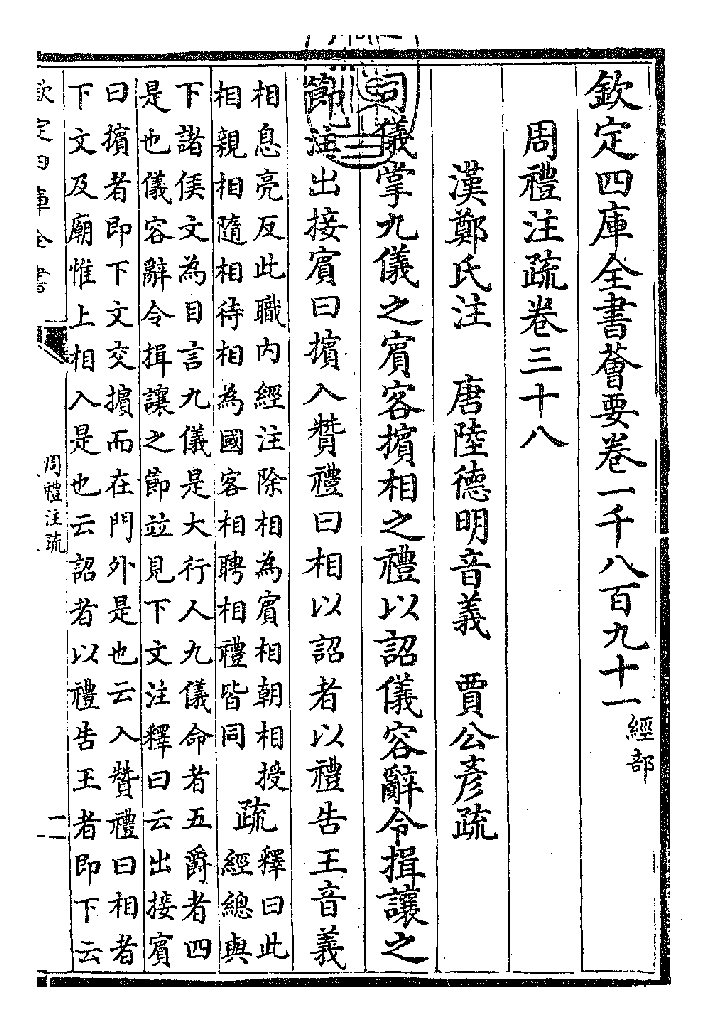 欽定四庫全書薈要卷一千八百九十一 經部
周禮注疏卷三十八
漢鄭氏注 唐陸德明音義 賈公彥疏
司儀掌九儀之賓客擯相之禮以詔儀容辭令揖讓之
節注出接賓曰擯入贊禮曰相以詔者以禮告王音義
相息亮反此職內經注除相為賓相朝相授
相親相隨相待相為國客相聘相禮皆同
疏釋曰此
經總與
下諸侯文為目言九儀是大行人九儀命者五爵者四
是也儀容辭令揖讓之節並見下文注釋曰云出接賓
曰擯者即下文交擯而在門外是也云入贊禮曰相者
下文及廟惟上相入是也云詔者以禮告王者即下云
欽定四庫全書
周禮注疏
一